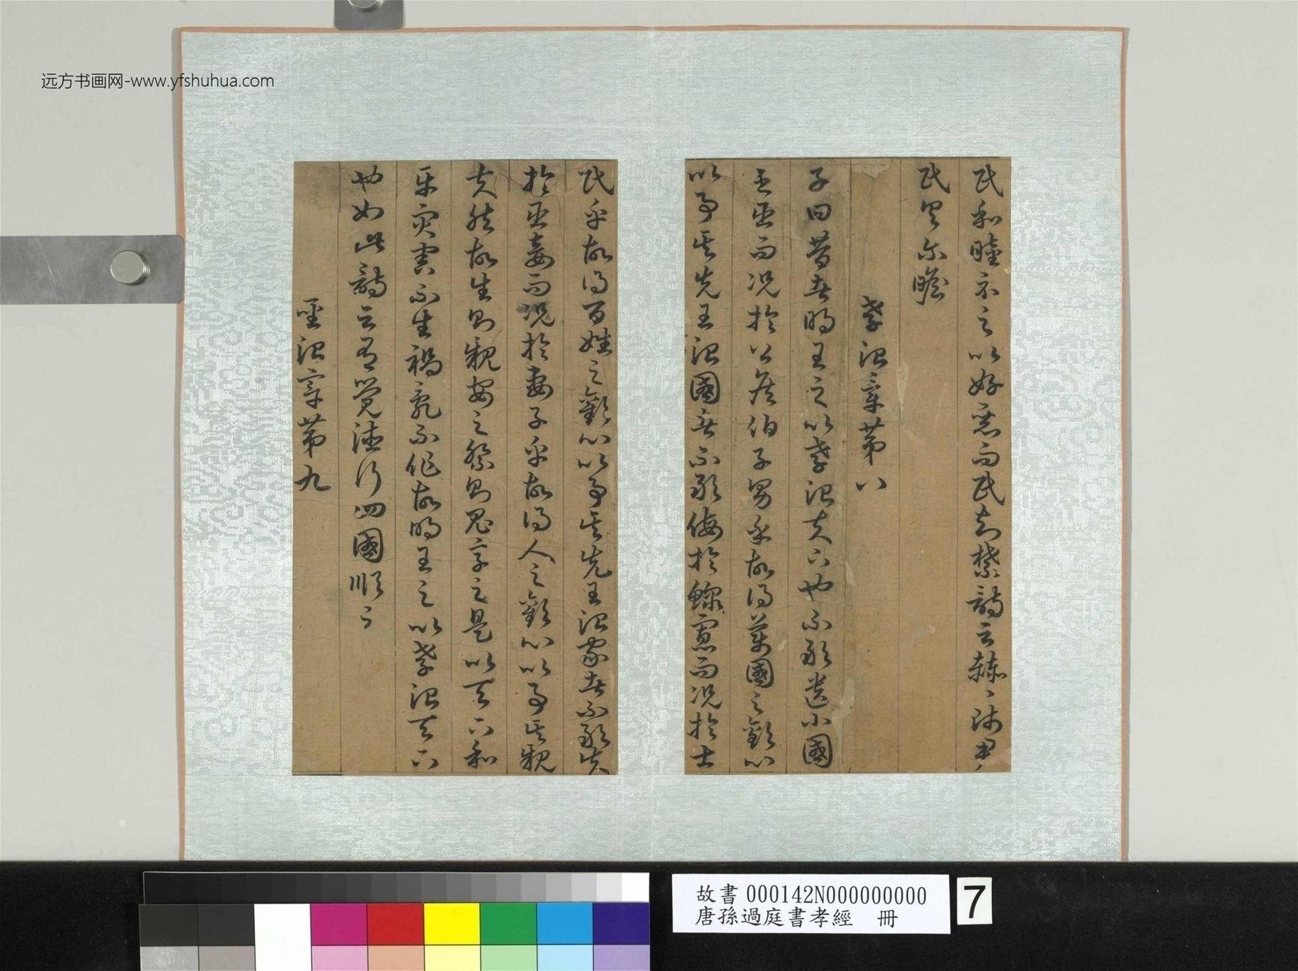 远方书画网-www.yfshuhua.com
民和睦示之以好惡而民知禁詩云赫〻師尹
民具尔瞻
孝治章第八
子曰昔者明王之以孝治天下也不敢遺小國
之臣而况於公侯伯子男乎故得萬國之歡心
以事其先王治國者不敢侮於鰥寡而况於士
民乎故得百姓之歡心以事其先王治家者不敢失
於臣妾而况於妻子乎故得人之歡心以事其親
夫然故生則親安之祭則鬼享之是以天下和
平灾害不生禍亂不作故明王之以孝治天下
也如此詩云有覺德行四國順之
聖治章第九
故書 000142N000000000
唐孫過庭書孝經 冊
7